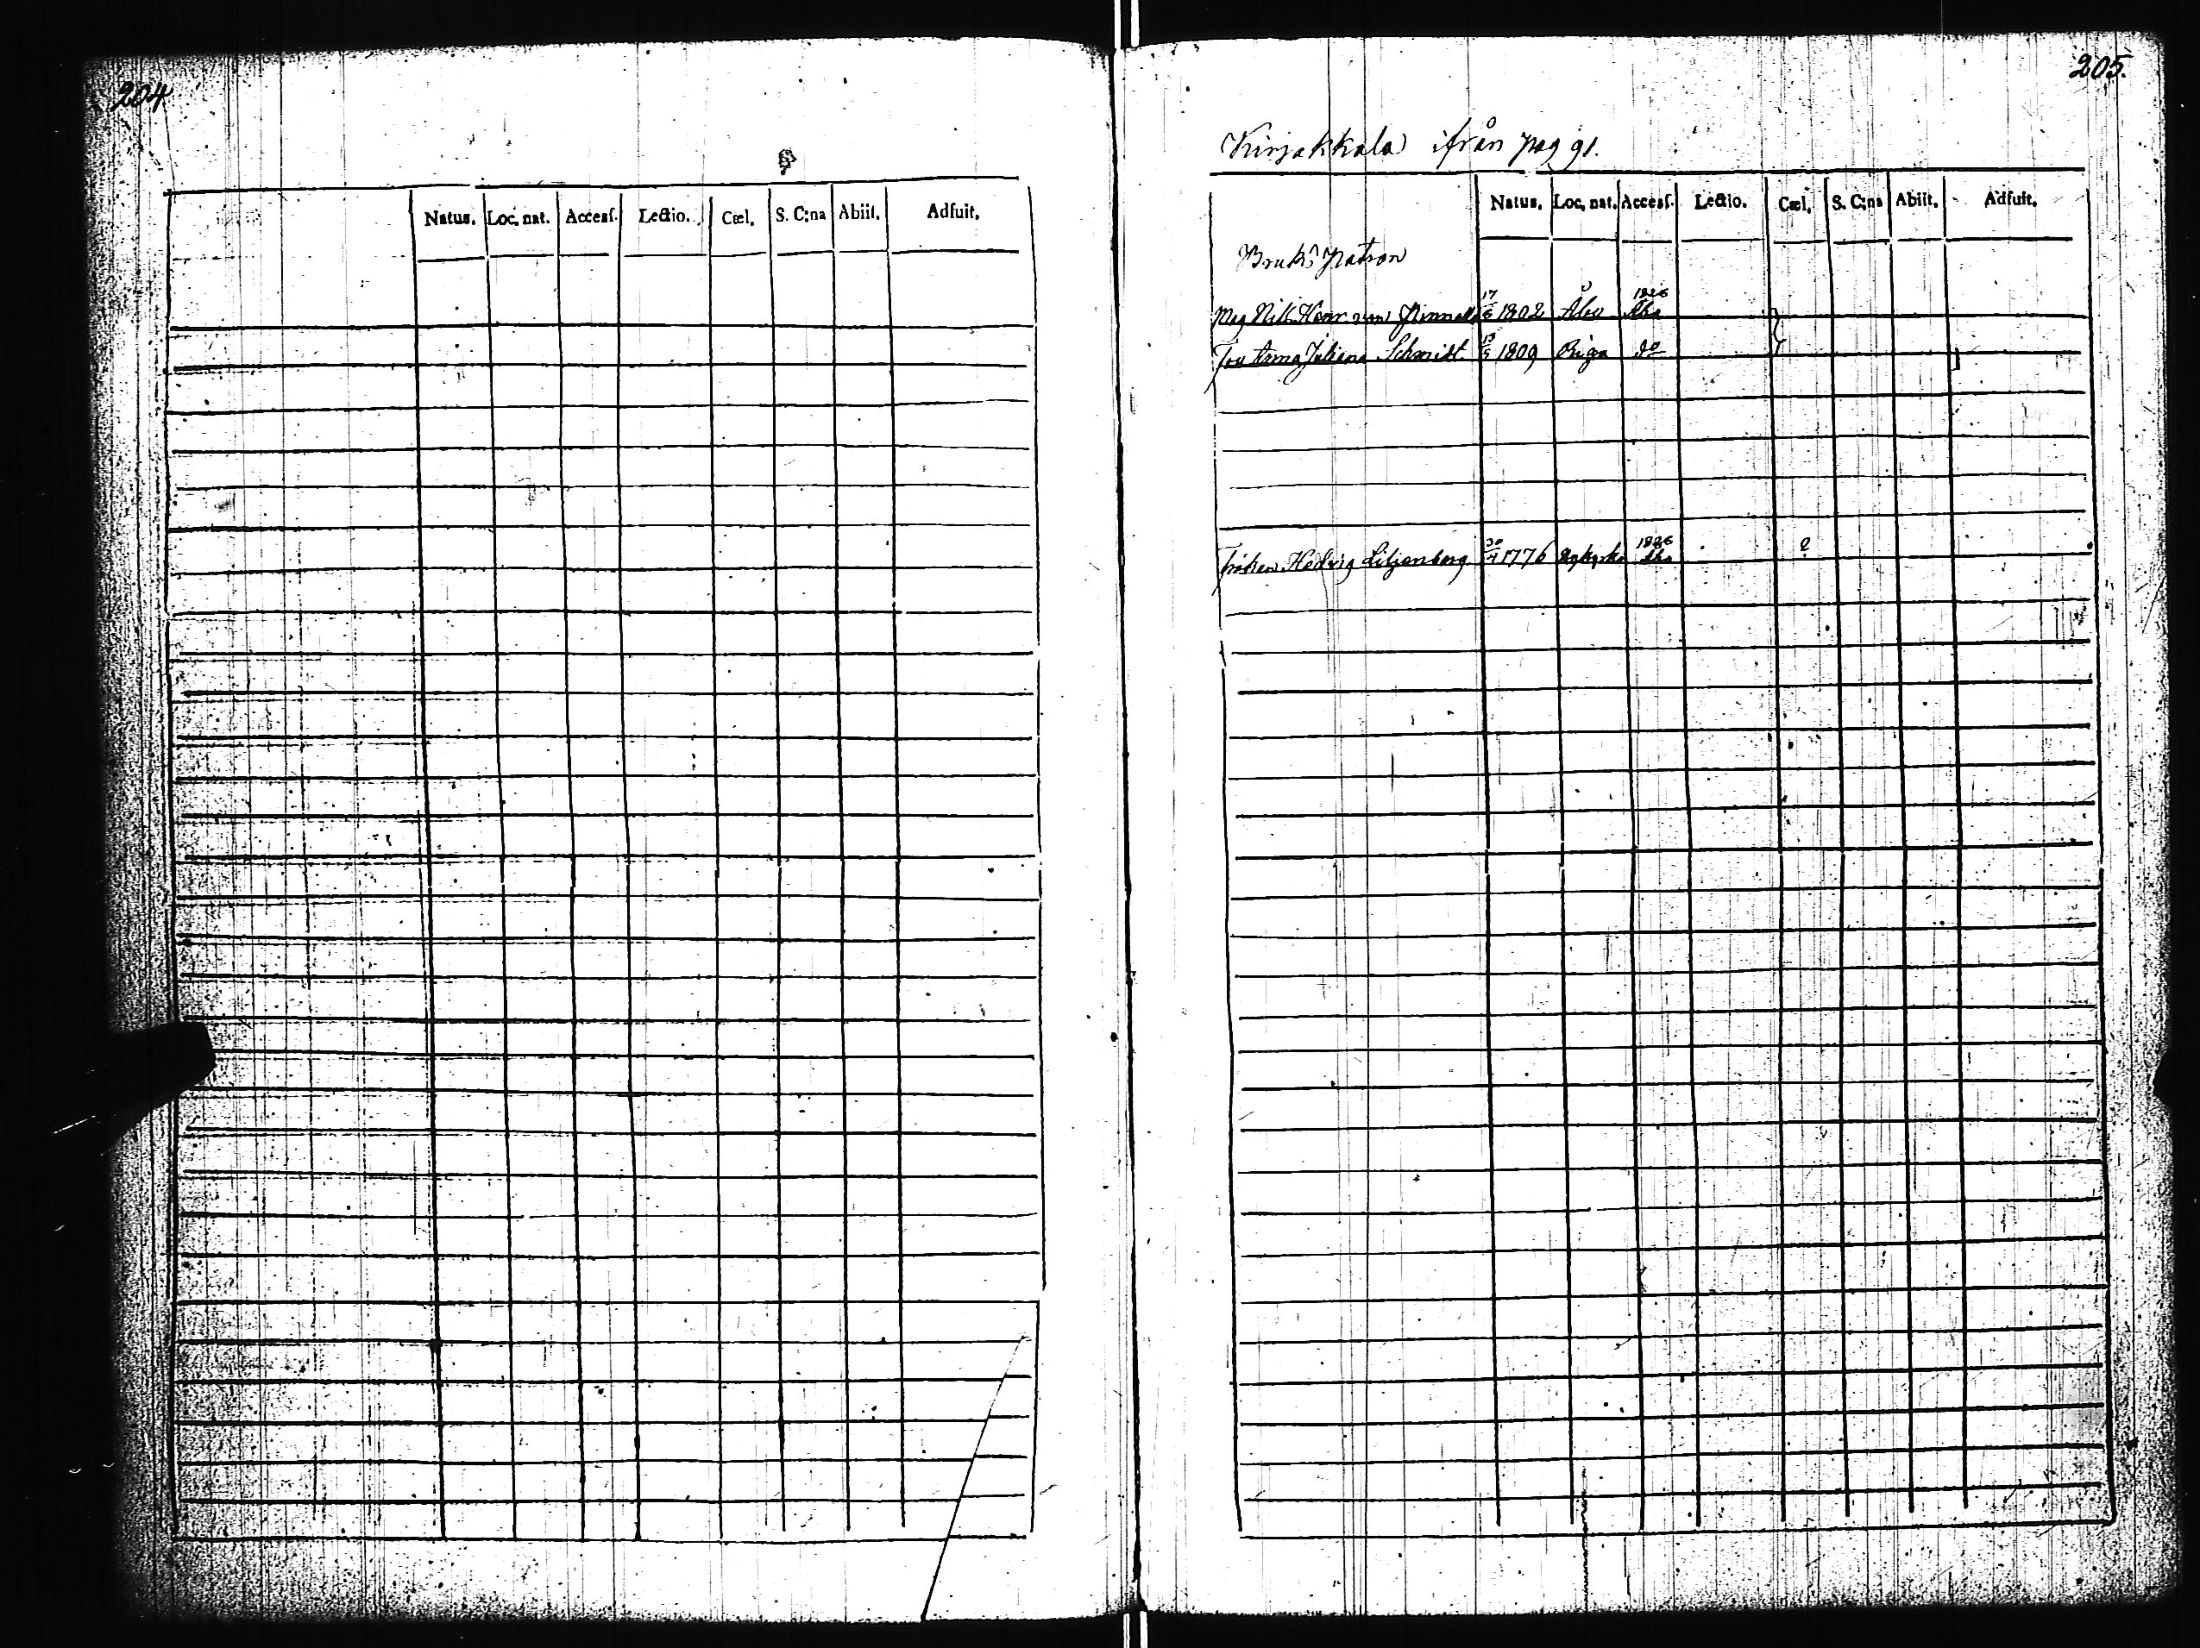 204
Natus. Loc. nat. Access. Lectio. Cœl. S. C:na Abiit. Adfuit.
205.
Kirjakkala ifrån pag 91.
Natus. Loc. nat. Access. Lectio. Cœl. S. C:na Abiit. Adfuit.
Bruks Patron
Mag Nils Henr von 1802 Åbo 1826 Åbo
Fru Anna Juliana Schmitt 1809 Riga do
Fröken Hedvig Liljenberg 1776 1826 Åbo